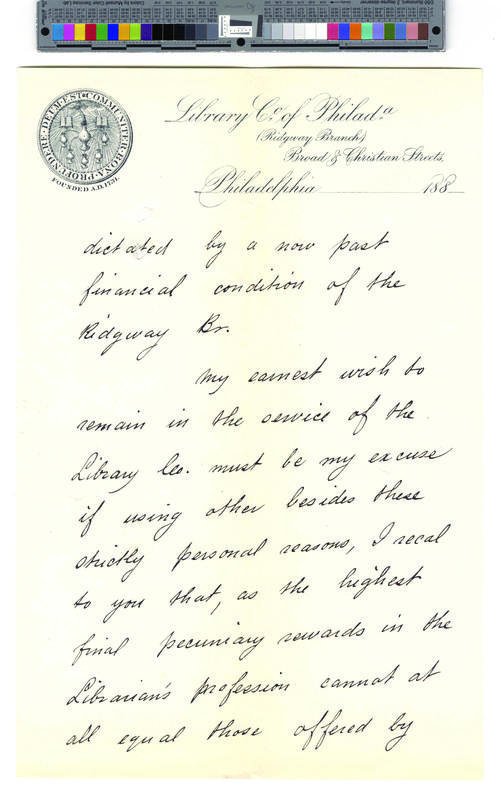 COMMUNITER BONA PROFUNDERE DEUM EST
FOUNDED A.D. 1731.
Library Co. of Philada.
(Ridgway Branch)
Broad & Christian Streets,
Philadelphia 188
dictated by a now past
financial condition of the
Ridgway Br.
My earnest wish to
remain in the service of the
Library Co. must be my excuse
if using other besides these
strictly personal reasons, I recal
to you that, as the highest
final pecuniary rewards in the
Librarian's profession cannot at
all equal those offered by